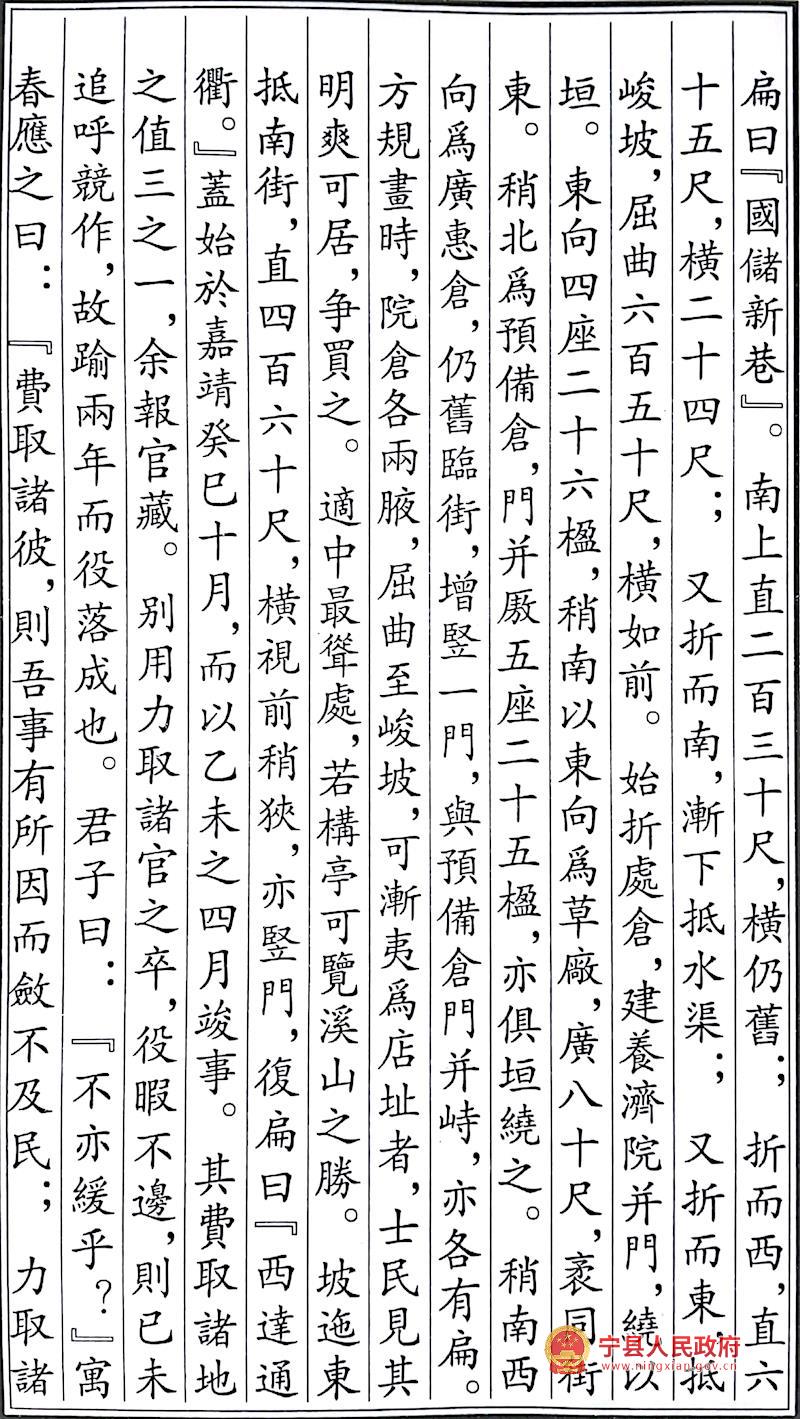 扁曰『國儲新巷』。南上直二百三十尺，橫仍舊；折而西，直六
十五尺，橫二十四尺；又折而南，漸下抵水渠；又折而東，抵
峻坡，屈曲六百五十尺，橫如前。始折處倉，建養濟院并門，繞以
垣。東向四座二十六楹，稍南以東向爲草廠，廣八十尺，袤同街
東。稍北爲預備倉，門并厫五座二十五楹，亦俱垣繞之。稍南西
向爲廣惠倉，仍舊臨街，增竪一門，與預備倉門并峙，亦各有扁。
方規畫時，院倉各兩腋，屈曲至峻坡，可漸夷爲店址者，士民見其
明爽可居，争買之。適中最聳處，若構亭可覽溪山之勝。坡迤東
抵南街，直四百六十尺，橫視前稍狹，亦竪門，復扁曰『西達通
衢。』蓋始於嘉靖癸巳十月，而以乙未之四月竣事。其費取諸地
之值三之一，余報官藏。别用力取諸官之卒，役暇不邊，則已未
追呼競作，故踰兩年而役落成也。君子曰：『不亦緩乎？』寓
春應之曰：『費取諸彼，則吾事有所因而斂不及民；力取諸
宁县人民政府
www.ningxian.gov.cn